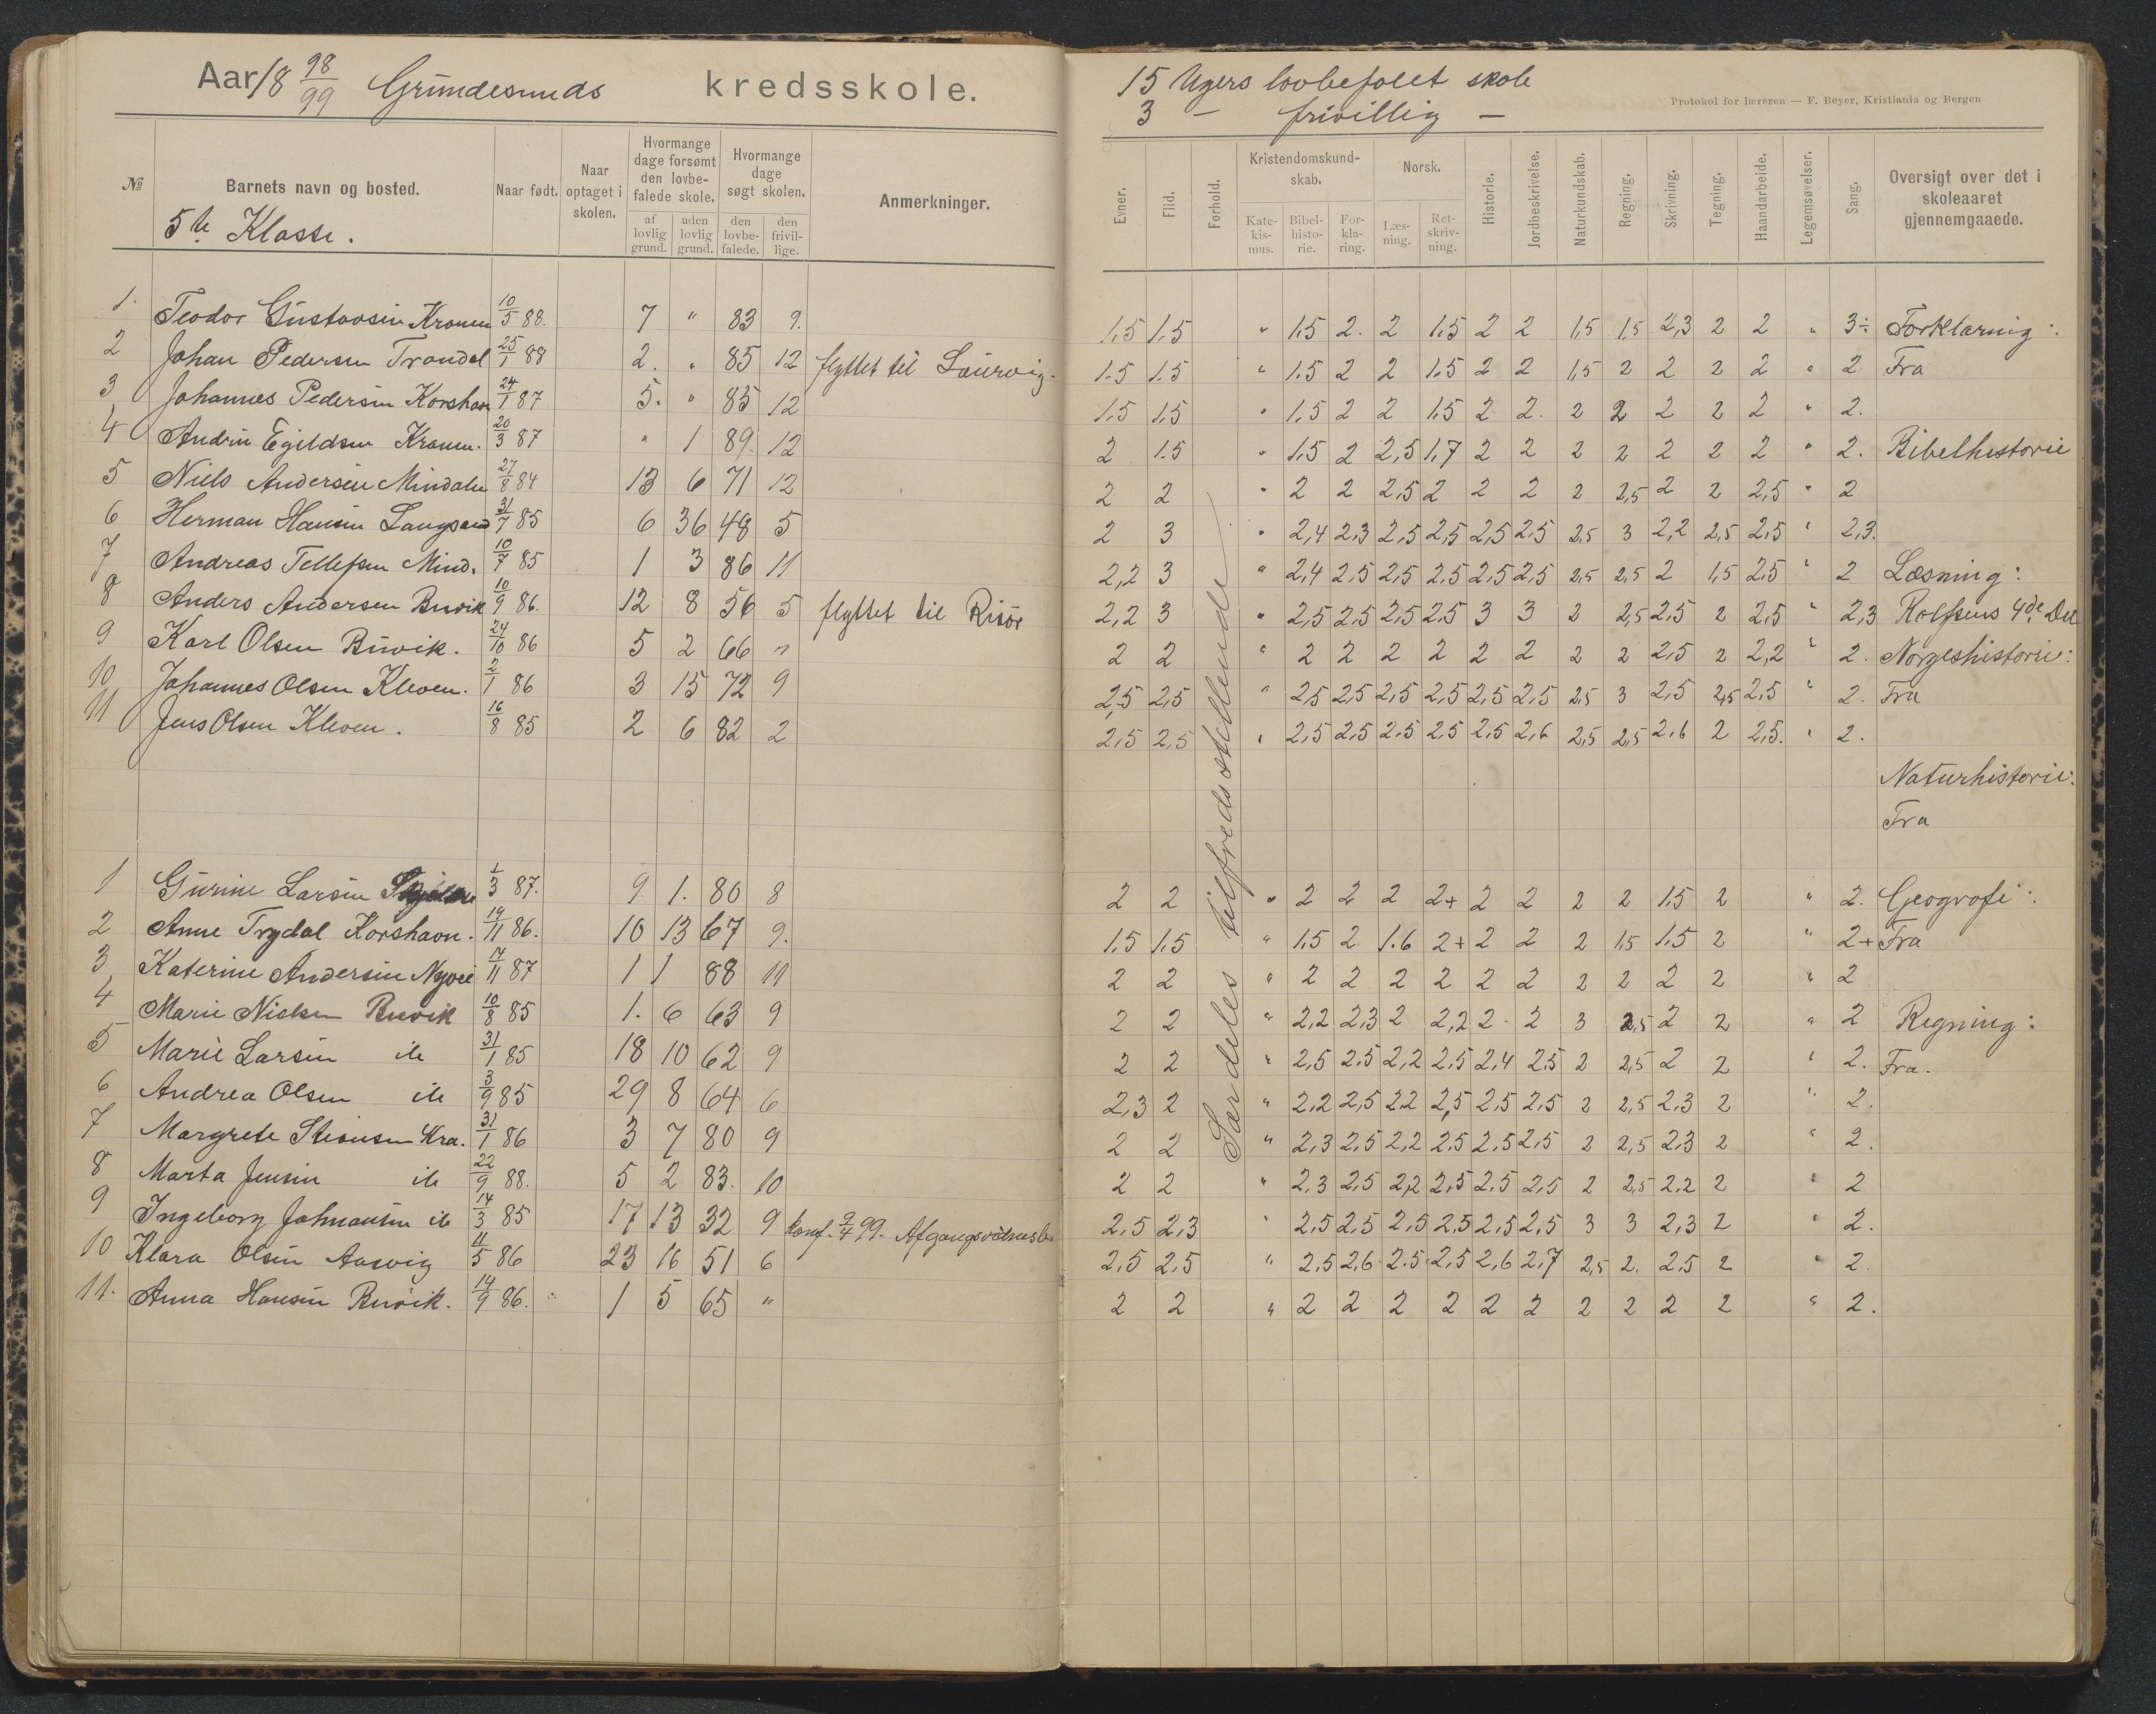 Aar 18 98/99 Grundesunds kredsskole.
№ Barnets navn og bosted. Naar født. Naar optaget i skolen. Hvormange dage forsømt den lovbefalede skole. af lovlig grund. uden lovlig grund. Hvormange dage søgt skolen. den lovbefalede. den frivillige. Anmerkninger.
5te Klasse.
1. Teodor Gustavsen Kronen 10/5 88. 7 " 83 9.
2 Johan Pedersen Trondal 25/1 88 2. " 85 12 flyttet til Laurvig.
3 Johannes Pedersen Korshavn 24/1 87 5. " 85 12
4 Andrin Egildsen Kronen. 20/3 87 " 1 89. 12
5 Niels Andersen Mindalen 27/8 84 13 6 71 12
6 Herman Hansen Langsand 31/7 85 6 36 48 5
7 Andreas Tellefsen Mind. 10/7 85 1 3 86 11
8 Anders Andersen Buvik 10/9 86. 12 8 56 5 flyttet til Risör
9 Karl Olsen Buvik. 24/10 86 5 2 66 "
10 Johannes Olsen Kleven. 2/1 86 3 15 72 9
11 Jens Olsen Kleven. 16/8 85 2 6 82 2
1 Gurine Larsen 1/3 87. 9 1. 80 8
2 Anne Trydal Korshavn. 19/11 86. 10 13 67 9.
3 Katerine Andersen Nyvei 14/11 87 1 1 88 11
4 Marie Nielsen Buvik 10/8 85 1. 6 63 9
5 Marie Larsen ib 31/1 85 18 10 62 9
6 Andrea Olsen ib 3/9 85 29 8 64 6
7 Margrete Stensen Kra. 31/1 86 3 7 80 9
8 Marta Jensen ib 22/9 88. 5 2 83. 10
9 Ingeborg Johnansen ib 14/3 85 17 13 32 9 konf. 9/4 99. Afgangsvidnesb.
10 Klara Olsen Aasvig 11/5 86 23 16 51 6
11. Anna Hansen Buvik. 14/9 86. " 1 5 65 "
15 Ugers lovbefalet skole
3 — frivillig —
Protokol for læreren — F. Beyer, Kristiania og Bergen
Evner. Flid. Forhold. Kristendomskundskab. Katekismus. Bibelhistorie. Forklaring. Norsk. Læsning. Retskrivning. Historie. Jordbeskrivelse. Naturkundskab. Regning. Skrivning. Tegning. Haandarbeide. Legemsøvelser. Sang. Oversigt over det i skoleaaret gjennemgaaede.
Særdeles tilfredsstillende
1,5 1.5 " 1.5 2. 2 1.5 2 2 1,5 1,5 2,3 2 2 " 3÷ Forklaring:
1.5 1.5 " 1.5 2 2 1.5 2 2 1,5 2 2 2 2 " 2 Fra
1.5 1.5 " 1.5 2 2 1.5 2 2. 2 2 2 2 2 " 2.
2 1.5 " 1.5 2 2,5 1.7 2 2 2 2 2 2 2 " 2. Bibelhistorie
2 2 " 2 2 2.5 2 2 2 2 2,5 2 2 2,5 " 2
2 3 " 2,4 2.3 2,5 2,5 2,5 2.5 2,5 3 2,2 2,5 2,5 " 2,3.
2,2 3 " 2,4 2.5 2,5 2.5 2.5 2,5 2,5 2,5 2 1,5 2,5 " 2 Læsning:
2,2 3 " 2,5 2,5 2,5 2,5 3 3 2 2,5 2,5 2 2,5 " 2,3 Rolfsens 4de Del
2 2 " 2 2 2 2 2 2 2 2 2,5 2 2,2 " 2. Norgeshistorie:
2,5 2,5 " 2,5 2,5 2,5 2,5 2,5 2,5 2,5 3 2,5 2,5 2,5 " 2. Fra
2,5 2,5 " 2,5 2,5 2.5 2.5 2.5 2,6 2,5 2,5 2,6 2 2,5. " 2.
Naturhistorie:
Fra
2 2 " 2 2 2 2+ 2 2 2 2 1.5 2 " 2. Geografi:
1.5 1.5 " 1.5 2 1.6 2+ 2 2 2 1,5 1.5 2 " 2+ Fra
2 2 " 2 2 2 2 2 2 2 2 2 2 " 2
2 2 " 2,2 2,3 2 2,2 2 2 3 2,5 2 2 " 2 Regning:
2 2 " 2,5 2.5 2,2 2,5 2,4 2,5 2 2,5 2 2 " 2. Fra.
2,3 2 " 2,2 2,5 2,2 2,5 2,5 2,5 2 2,5 2,3 2 " 2.
2 2 " 2,3 2,5 2,2 2,5 2,5 2,5 2 2,5 2,3 2 " 2.
2 2 " 2,3 2,5 2,2 2,5 2,5 2,5 2 2,5 2,2 2 " 2
2,5 2,3 " 2,5 2,5 2,5 2,5 2,5 2,5 3 3 2,3 2 " 2.
2,5 2,5 " 2,5 2,6 2.5 2,5 2,6 2,7 2,5 2. 2,5 2 " 2.
2 2 " 2 2 2 2 2 2 2 2 2 2 " 2.